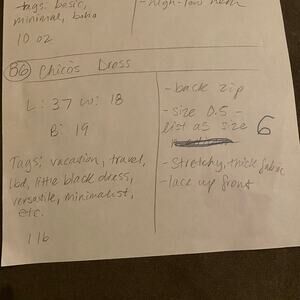 -tags: basic,
minimal, boho
10 oz
- high-low hem
86 Chico's Dress
L: 37 W: 18
B: 19
Tags: vacation, travel,
lbd, little black dress,
versatile, minimalist,
etc.
1 lb
- back zip
- size 0.5 -
list as size 6
- stretchy, thick fabric
- lace up front